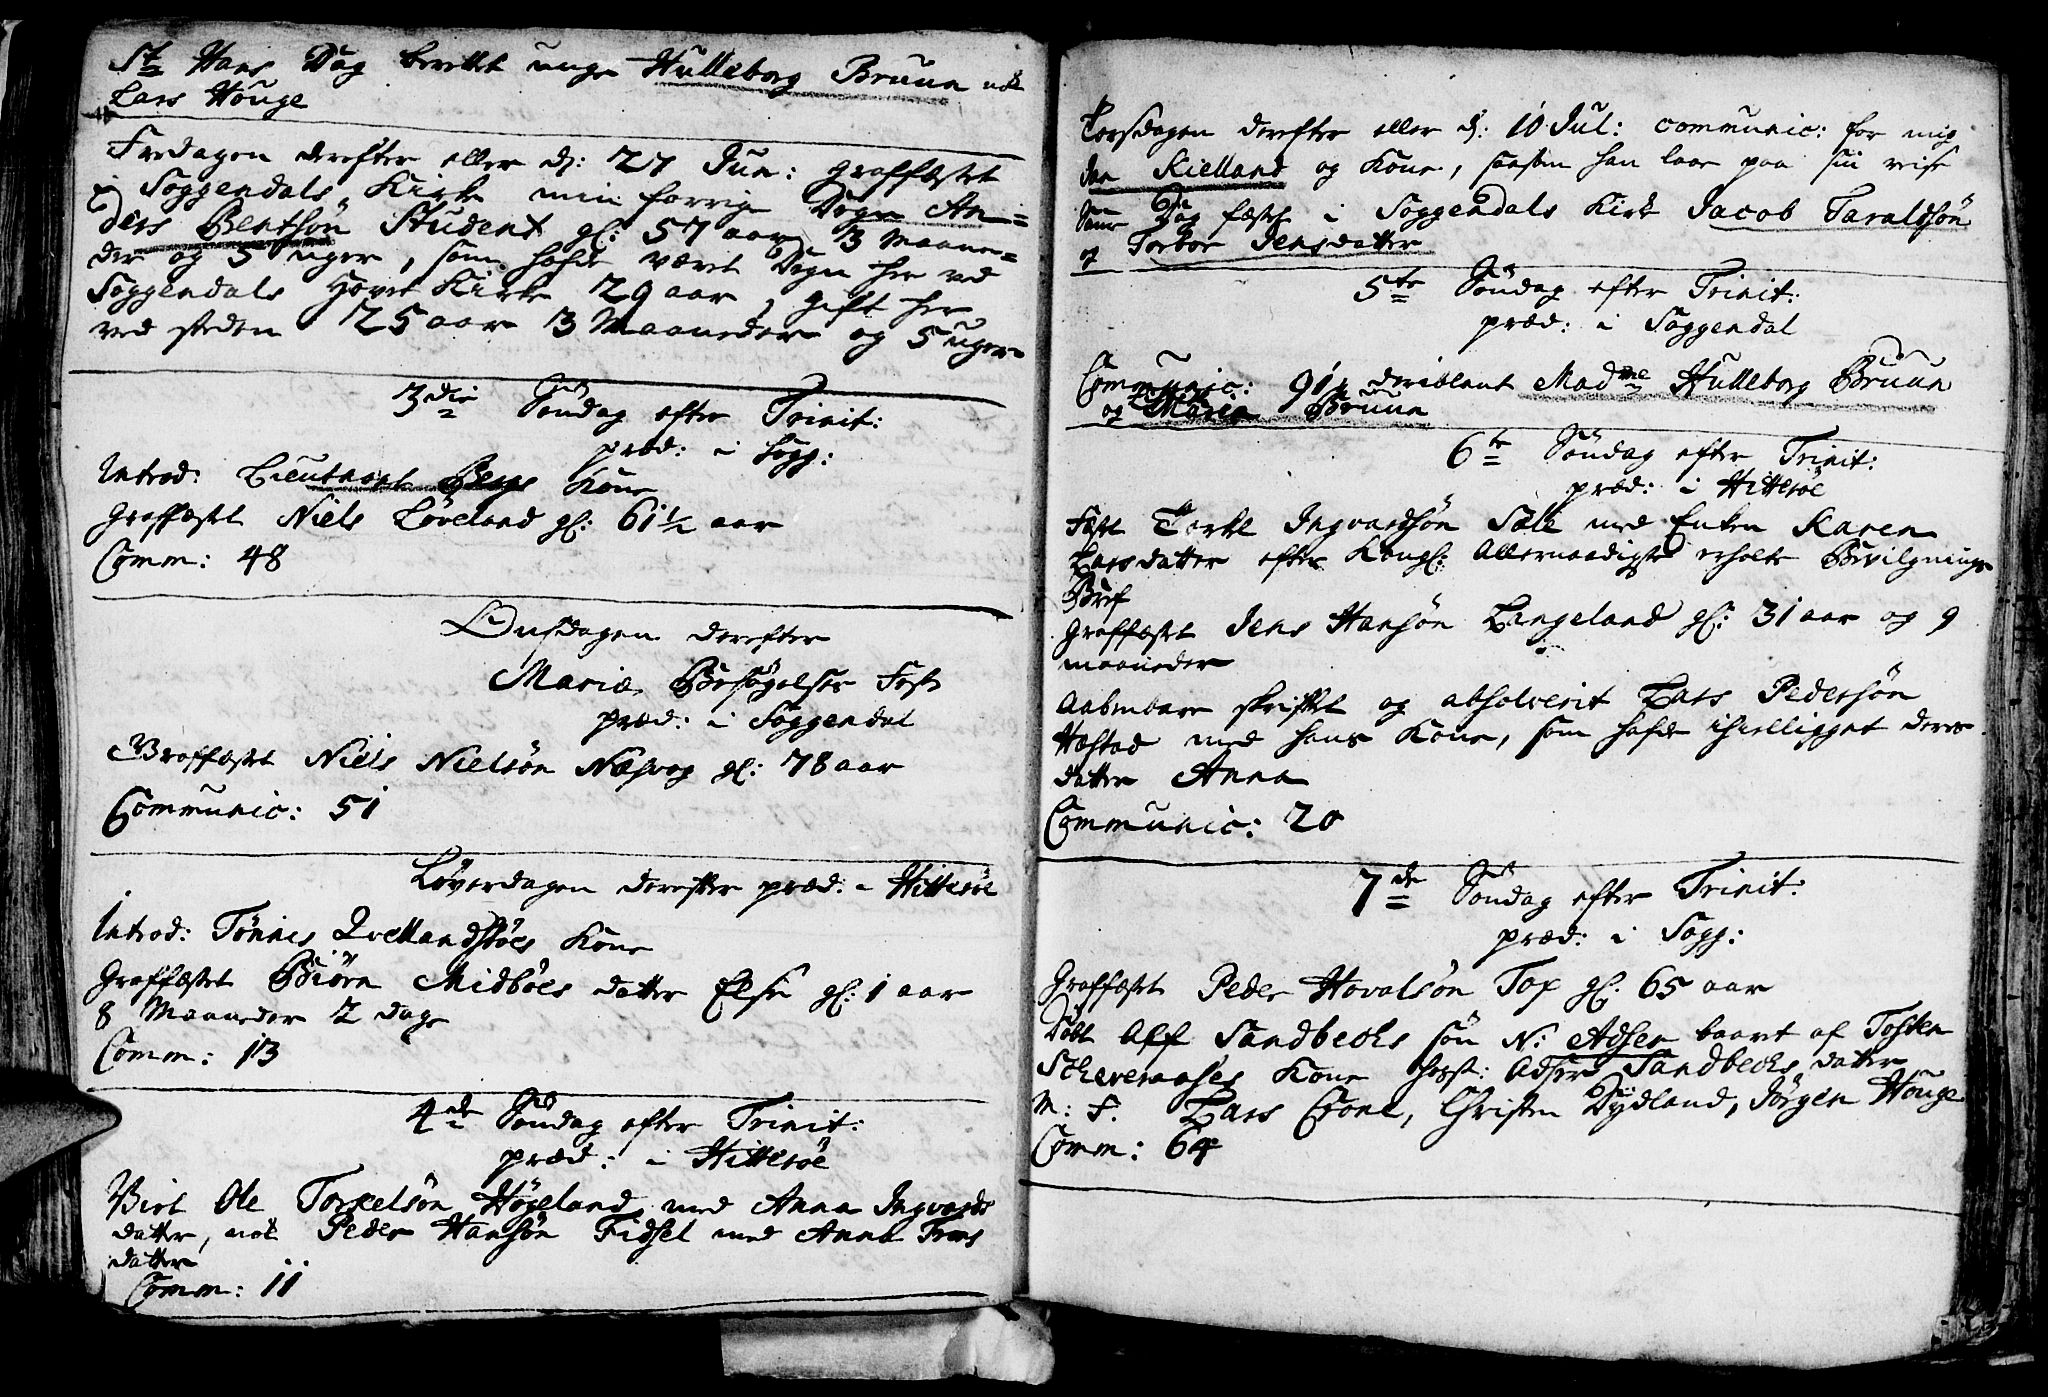 St Hans Dag berettet unge Hulleborg Bruun
Lars Houge
Fredagen derefter eller d: 27 Jun: Graffæstet
i Soggendals Kirke min forrige Degn An-
ders Bentsøn Student gl: 57 aar, 3 Maane-
der og 5 uger, som hafde været Degn her ved
Soggendals Hovet Kirke 29 aar, gift her
ved steden 25 aar 3 Maaneder og 5 uger
3die Søndag efter Trinit:
præd: i Sogg:
Introd: Lieutnant Bergs Kone
Graffæstet Niels Løveland gl: 61½ aar
Comm: 48
Onsdagen derefter
Mariæ Besøgelses Fest
præd: i Soggendal
Graffæstet Niels Nielsøn Næsvog gl: 78 aar
Communic: 51
Løverdagen derefter præd: i Hittesøe
Introd: Tønnes Qvellandstøes Kone
Graffæstet Biørn Midbøes datter Else gl: 1 aar
8 Maaneder 2 dage
Comm: 13
4de Søndag efter Trinit:
præd: i Hittesøe
Viet Ole Torkelsøn Høgeland med Anna Ingvards
datter, nok Peder Hansøn Fidsel med Anna
datter
Comm: 11
Torsdagen derefter eller d: 10 Jul: communic: for mig
Kielland og Kone, saasom han laae paa sin reise
Samme Dag fæstet i Soggendals Kirke Jacob Taraldsøn
og Torbor Jensdatter
5te Søndag efter Trinit:
præd: i Soggendal
Communic: 91, deriblant Madme Hulleborg Bruun
og Maria Bruun
6te Søndag efter Trinit:
præd: i Hittesøe
Fæst Torkel Ingvardsøn Sæle med Enken Karen
Larsdatter efter Kongl: Allernaadigste erholte Bevilgnings
Bref
Graffæstet Jens Hansøn Lingeland gl: 31 aar og 9
maaneder
Aabenbare skriftet og absolverit Lars Pedersøn
Hæstad med hans Kone, som hafde ihielligget deres
datter Anna
Communic: 20
7de Søndag efter Trinit:
præd: i Sogg:
Graffæstet Peder Hovalsøn Top gl: 65 aar
Døbt Alf Sandbecks søn N: Adser baaret af Tosten
Kone Adser Sandbecks datter
M: F. Lars Crone, Christen Dydland, Jørgen Houge
Comm: 64